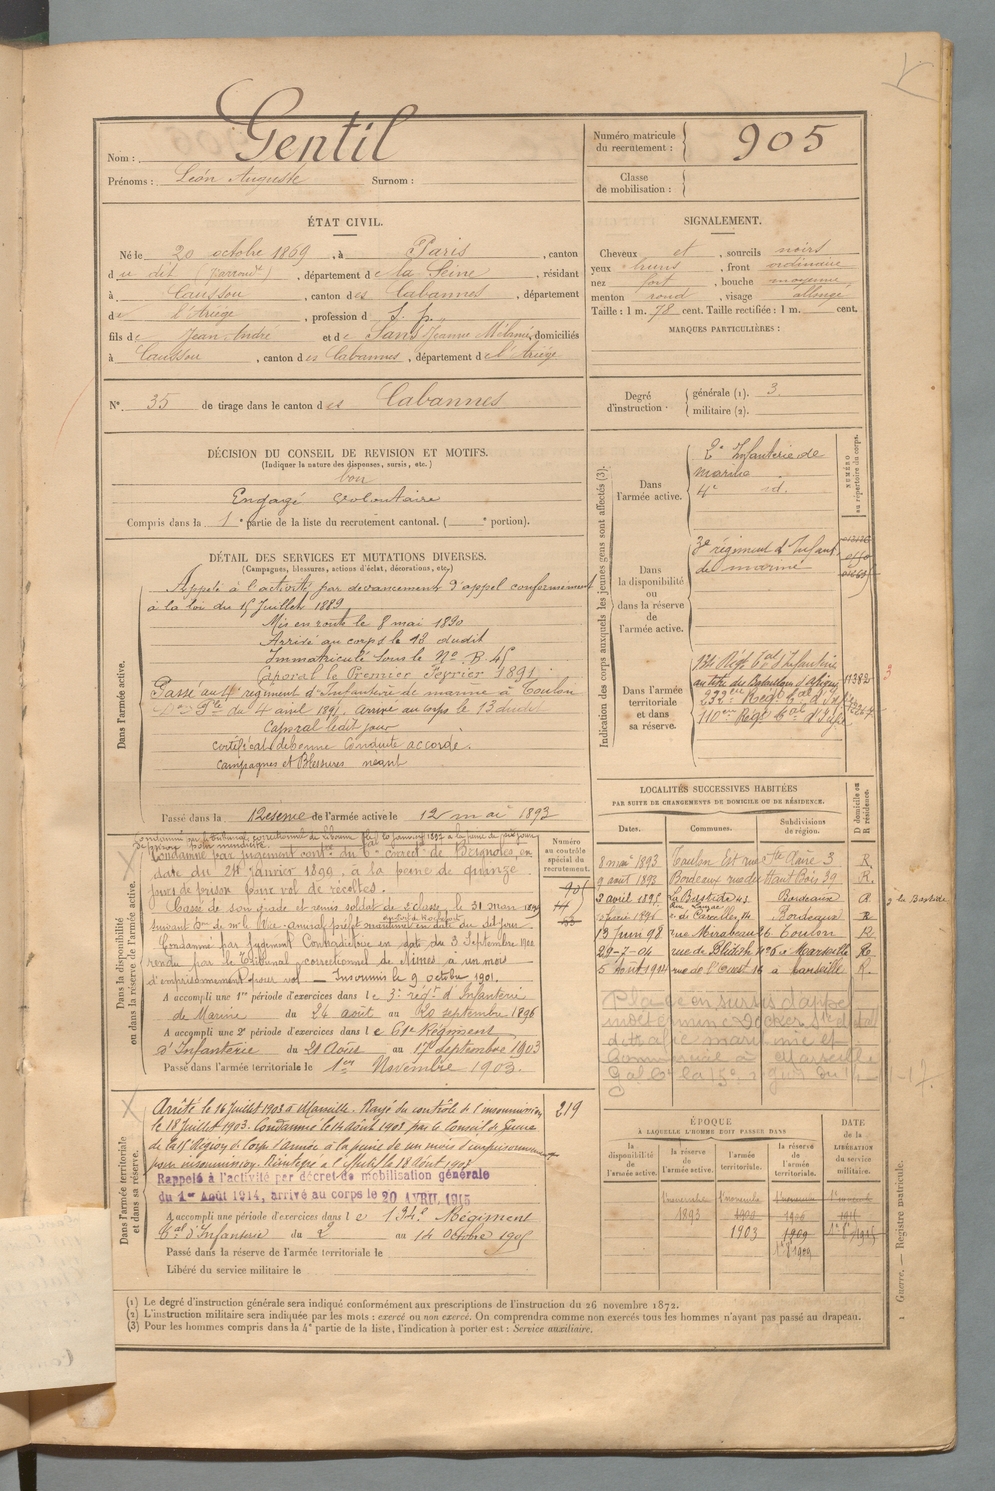 Nom : Gentil
Prénoms : Léon Auguste Surnom :
Numéro matricule du recrutement : 905
Classe de mobilisation :
ÉTAT CIVIL.
Né le 20 octobre 1869, à Paris, canton
du dit, département de la Seine, résidant
à Caussou, canton des Cabannes, département
de l'Ariège, profession d S. p.
fils de Jean André et de Sans Jeanne Mélanie, domiciliés
à Caussou, canton des Cabannes, département de l'Ariège
N° 35 de tirage dans le canton des Cabannes
SIGNALEMENT.
Cheveux et, sourcils noirs
yeux bruns, front ordinaire
nez fort, bouche moyenne
menton rond, visage allongé
Taille : 1 m. 78 cent. Taille rectifiée : 1 m. cent.
MARQUES PARTICULIÈRES :
Degré d'instruction :
générale (1). 3
militaire (2).
DÉCISION DU CONSEIL DE REVISION ET MOTIFS.
(Indiquer la nature des dispenses, sursis, etc.)
bon
Engagé volontaire
Compris dans la 1e partie de la liste du recrutement cantonal. ( e portion).
DÉTAIL DES SERVICES ET MUTATIONS DIVERSES.
(Campagnes, blessures, actions d'éclat, décorations, etc.)
Dans l'armée active.
Appelé à l'activité par devancement d'appel conformément
à la loi du 15 Juillet 1889
Mis en route le 8 mai 1890
Arrivé au corps le 13 dudit
Immatriculé sous le No B 45
Caporal le Premier Février 1891
Passé au 4e régiment d'Infanterie de marine à Toulon
du 4 avril 1891. Arrivé au corps le 13 dudit
Caporal ledit jour
certificat de bonne Conduite accordé.
Campagnes et Blessures néant
Passé dans la réserve de l'armée active le 12 mai 1893
Dans la disponibilité ou dans la réserve de l'armée active.
Numéro au contrôle spécial du recrutement.
Condamné par jugement contre du tal correctel de Brignoles, en
date du 24 janvier 1899, à la peine de quinze
jours de prison pour vol de récoltes.
Cassé de son grade et remis soldat de 2e classe, le 31 mai 1899
Condamné par jugement Contradictoire en date du 3 Septembre 1900
rendu par le Tribunal correctionnel de Nîmes à un mois
d'emprisonnement pour vol — Insoumis le 9 octobre 1901.
A accompli une 1re période d'exercices dans le 3e régt d'Infanterie
de Marine du 24 août au 20 septembre 1896
A accompli une 2e période d'exercices dans le 61e Régiment
d'Infanterie du 21 Août au 17 septembre 1903
Passé dans l'armée territoriale le 1er Novembre 1903.
Dans l'armée territoriale et dans sa réserve.
Arrêté le 16 Juillet 1903 à Marseille. Rayé du contrôle de l'insoumission
le 18 Juillet 1903. Condamné le 14 Août 1903 par le Conseil de Guerre
de la 15e Région de Corps d'Armée à la peine de un mois d'emprisonnement
pour insoumission.
219
Rappelé à l'activité par décret de mobilisation générale
du 1er Août 1914, arrivé au corps le 20 AVRIL 1915
A accompli une période d'exercices dans le 134e Régiment
tal d'Infanterie du 2 au 14 Octobre 1905
Passé dans la réserve de l'armée territoriale le
Libéré du service militaire le
Indication des corps auxquels les jeunes gens sont affectés (3).
NUMÉRO au répertoire du corps.
Dans l'armée active.
2e Infanterie de
marine
4e id.
Dans la disponibilité ou dans la réserve de l'armée active.
3e régiment d'Infant.
de marine
Dans l'armée territoriale et dans sa réserve.
134 Régt tal d'Infanterie
110ème Régt tal d'Infie
LOCALITÉS SUCCESSIVES HABITÉES
PAR SUITE DE CHANGEMENTS DE DOMICILE OU DE RÉSIDENCE.
Dates. Communes. Subdivisions de région. D domicile ou R résidence.
8 mai 1893 Toulon Est rue Ste Claire 3 R
9 août 1893 Bordeaux rue du Haut Bois 39 R.
2 avril 1895 La Bastide Bordeaux R
Bordeaux R
13 Juin 98 rue Mirabeau 26 Toulon R.
29-7-04 à Marseille R
5 Août 1914 rue de l'Ouest 16 à Marseille R.
Placé en sursis d'appel
indéterminé Docker
du trafic maritime et
Commercial à Marseille
ÉPOQUE
À LAQUELLE L'HOMME DOIT PASSER DANS
la disponibilité de l'armée active.
la réserve de l'armée active.
l'armée territoriale.
la réserve de l'armée territoriale.
DATE de la LIBÉRATION du service militaire.
1 novembre 1893
1 novembre 1903
(1) Le degré d'instruction générale sera indiqué conformément aux prescriptions de l'instruction du 26 novembre 1872.
(2) L'instruction militaire sera indiquée par les mots : exercé ou non exercé. On comprendra comme non exercés tous les hommes n'ayant pas passé au drapeau.
(3) Pour les hommes compris dans la 4e partie de la liste, l'indication à porter est : Service auxiliaire.
Guerre. — Registre matricule.